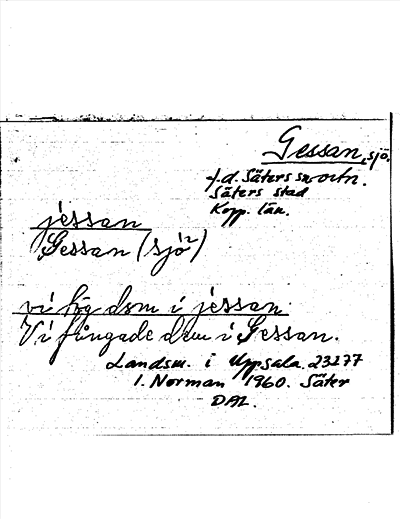 Gessan, sjö.
f.d. Säters sn
Säters stad
Kopp. län.
jessan
Gessan (sjö)
vi fig dom i jessan
Vi fingade dem i Gessan.
Landsm. i Uppsala. 23277
I. Norman 1960. Säter
DAL.